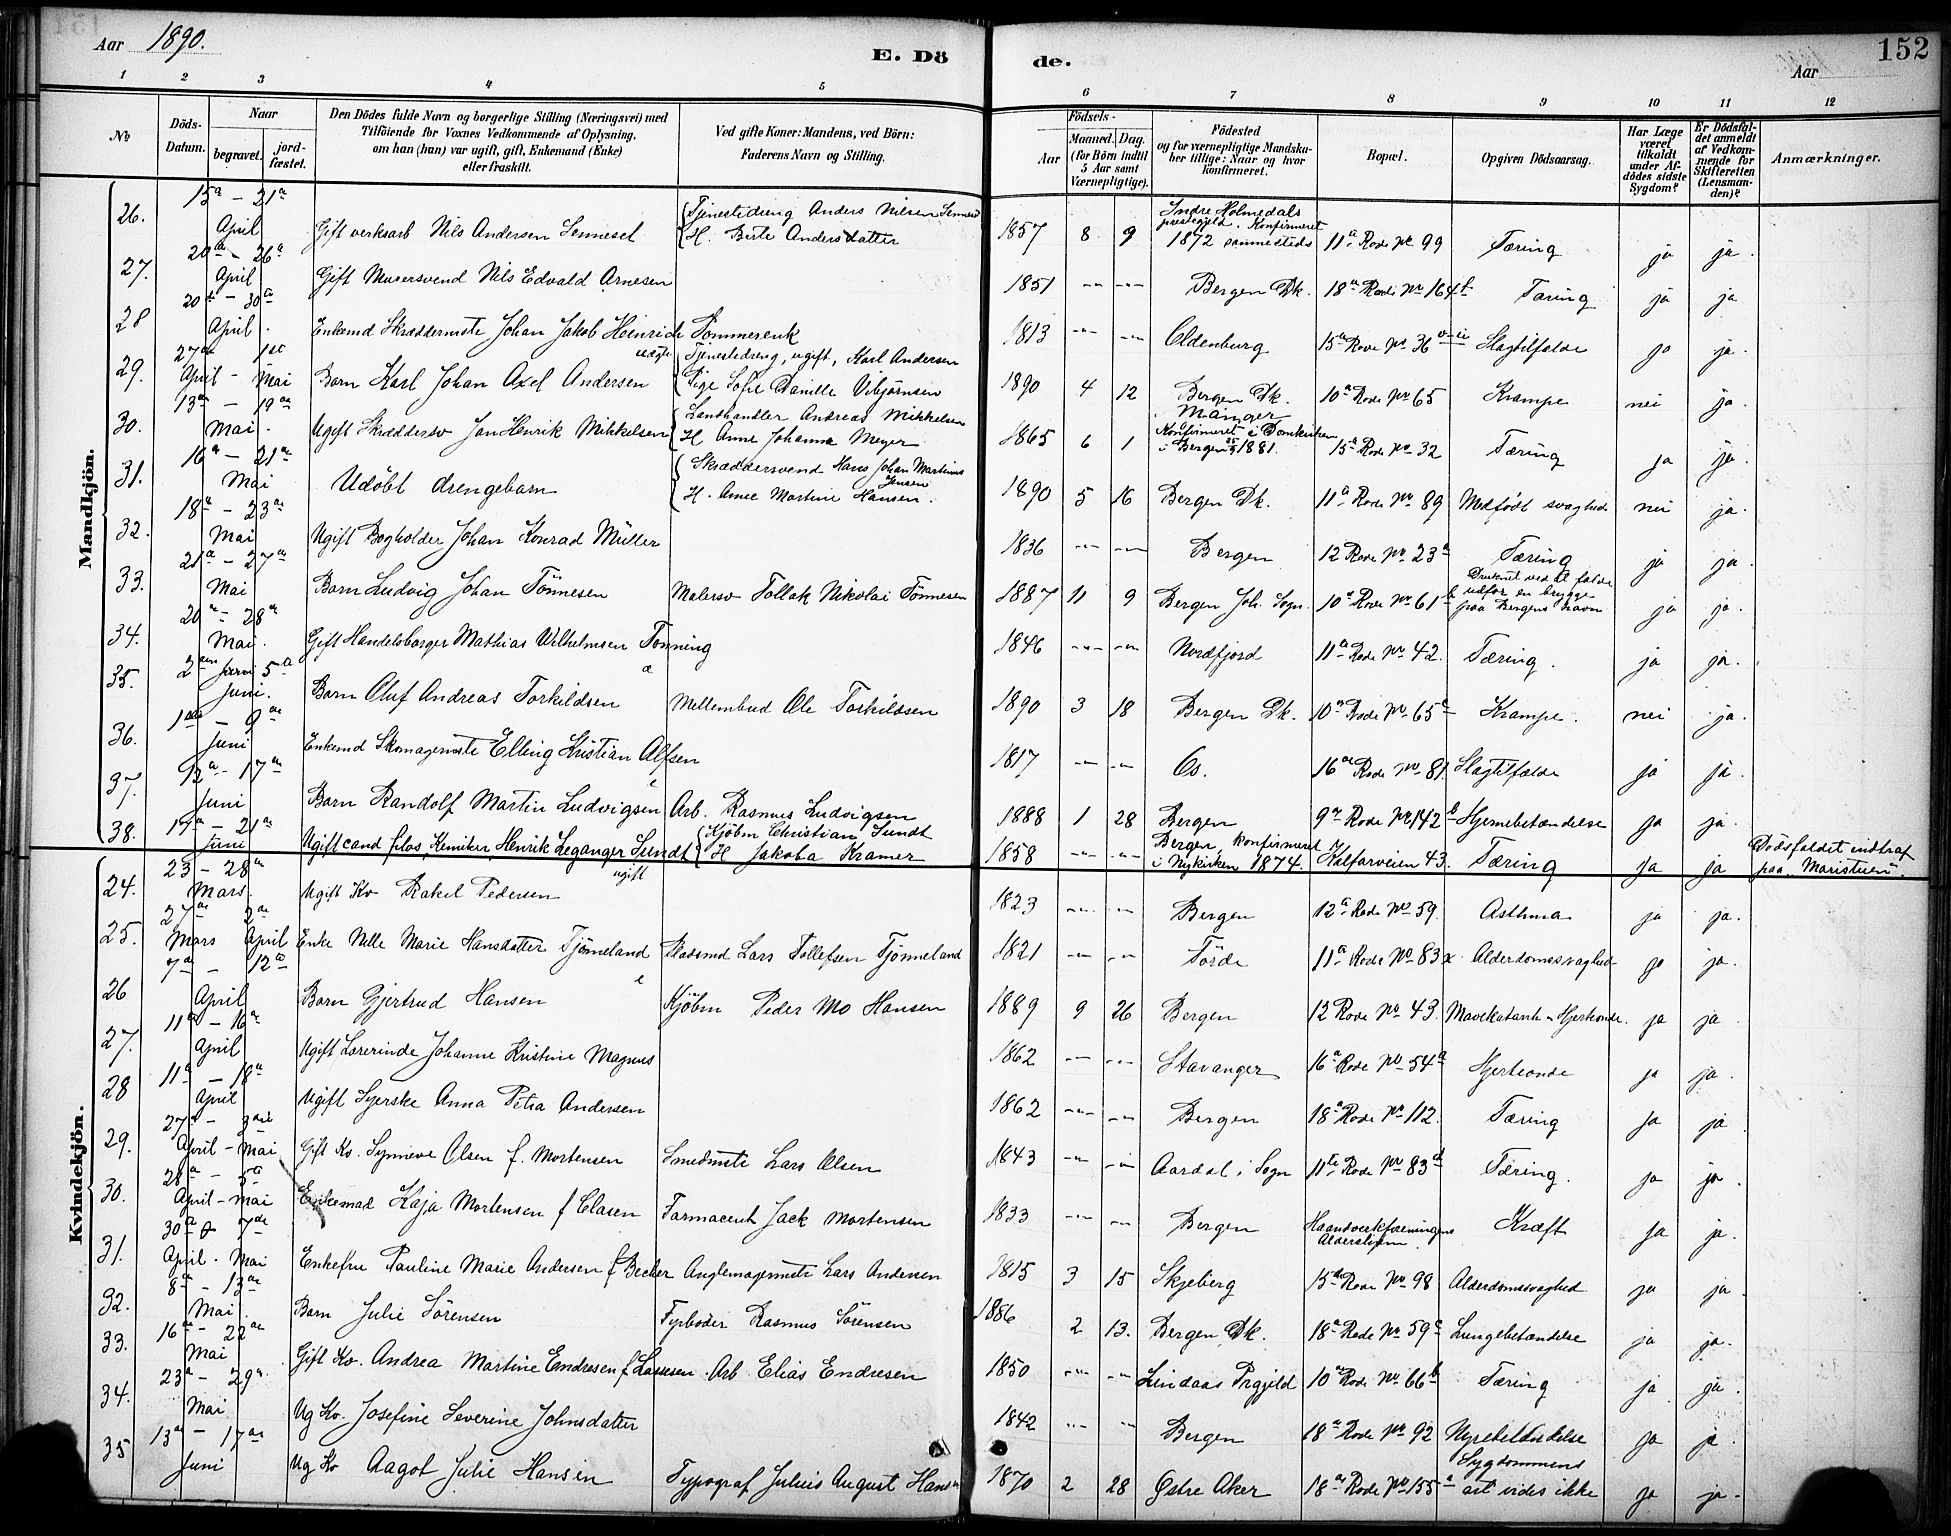 Aar 1890.
E. Dö de.
Aar
152
1 2 3 4 5 6 7 8 9 10 11 12
No
Döds-Datum.
Naar
begravet.
jord-fæstet.
Den Dödes fulde Navn og borgerlige Stilling (Næringsvei) med
Tilföiende for Voxnes Vedkommende af Oplysning,
om han (hun) var ugift, gift, Enkemand (Enke)
eller fraskilt.
Ved gifte Koner: Mandens, ved Börn:
Faderens Navn og Stilling.
Födsels-
Aar
Maaned. Dag.
(for Börn indtil
5 Aar samt
Værnepligtige).
Födested
og for værnepligtige Mandska-
ber tillige: Naar og hvor
konfirmeret.
Bopæl.
Opgiven Dödsaarsag.
Har Læge
været
tilkaldt
under Af-
dödes sidste
Sygdom?
Er Dödsfal-
det anmeldt
af Vedkom-
mende for
Skifteretten
(Lensman-
den)?
Anmærkninger.
Mandkjön.
26. 15a – 21a April Gift verksarb Nils Andersen Sennesel Tjenestedreng Anders Nilsen H. Berte Andersdatter 1857 8 9 Indre Holmedals prestegjeld. Konfirmeret 1872 sammesteds 11a Rode No 99 Tæring ja ja.
27. 20a – 26a April Gift Murersvend Nils Edvald Arnesen 1851 –"– –"– Bergen Dk. 18a Rode No 164 Tæring ja ja
28 20a – 30te April. Enkemd Skræddermste Johan Jakob Heinrich Pommerenk 1813 –"– –"– Oldenburg 15a Rode No 36 Slagtilfælde ja ja.
29. 27de April – 1ste Mai Barn Karl Johan Axel Andersen uægte Tjenestedreng, ugift, Karl Andersen Pige Sofie Danille Vibjørnsen 1890 4 12 Bergen Dk. 10a Rode No 65 Krampe nei ja.
30. 13de – 19de Mai. Ugift Skræddersv Jan Henrik Mikkelsen Landhandler Andreas Mikkelsen H Anne Johanna Meyer 1865 6 1 Manger Konfirmeret i Domkirken i Bergen 1881. 15a Rode No 32 Tæring ja ja.
31. 16a – 21de Mai Udöbt drengebarn Skræddersvend Hans Johan Martinus Jensen H. Anne Martine Hansen. 1890 5 16 Bergen Dk. 11a Rode No 89 Medfödt svaghed nei ja.
32. 18a – 23de Mai Ugift Bogholder Johan Konrad Müller 1836 –"– –"– Bergen 12 Rode No 23a Tæring ja ja.
33. 21a – 27de Mai Barn Ludvig Johan Tönnesen Malersv Tollak Nikolai Tönnesen 1887 11 9 Bergen Joh. Sogn. 10a Rode No 61b Druknet ved at falde udfor en brygge paa Bergens havn ja ja.
34. 20a – 28a Mai. Gift Handelsborger Mathias Wilhelmsen Tonning 1846 –"– –"– Nordfjord 11a Rode No 42. Tæring. ja ja.
35. 2den – 5a Juni. Barn Oluf Andreas Torkildsen Mellembud Ole Torkildsen 1890 3 18 Bergen Dk. 10a Rode No 65a Krampe. nei ja.
36. 1ste – 9de Juni Enkemd Skomagermste Elling Kristian Alfsen 1817 –"– –"– Os. 16de Rode No 81. Slagtilfælde ja ja.
37. 12a – 17de Juni Barn Randolf Martin Ludvigsen Arb. Rasmus Ludvigsen 1888 1 28 Bergen 9a Rode No 142b Hjernebetændelse ja ja.
38. 17a – 21de Juni Ugift cand filos, Kemiker, Henrik Leganger Sundt Kjöbm Christian Sundt H Jakoba Kramer 1858 –"– –"– Bergen, konfirmeret i Nykirken 1874. Kalfarveien 43. Tæring ja ja Dödsfaldet indtraf paa "Maristuen".
Kvindekjön.
24. 23 – 28a Mars. Ugift Kv Rakel Pedersen ugift 1823 –"– –"– Bergen 12a Rode No 59 Asthma ja ja.
25. 27de Mars 2de April Enke Nille Marie Hansdatter Tjønneland Stadsmd Lars Tollefsen Tjønneland 1821 –"– –"– Förde 11a Rode No 83x Alderdomssvaghed ja ja.
26 7de – 12te April Barn Gjertrud Hansen Kjöbm Peder Mo Hansen 1889 9 26 Bergen 12 Rode No 43. Mavekatarrh – Hjerteonde. ja ja
27. 11a – 16a April Ugift Lærerinde Johanne Kristine Magnus 1862 –"– –"– Stavanger 16a Rode No 54a Hjerteonde ja ja.
28 11a – 18a April Ugift Syerske Anna Petra Andersen 1862 –"– –"– Bergen 18a Rode No 112. Tæring ja ja
29. 27a – 3die April – Mai Gift Kv. Synneve Olsen f. Mortensen Smedmste Lars Olsen 1843 –"– –"– Aardal i Sogn 11te Rode No 83d Tæring. ja ja.
30. 28a – 5a April – Mai Enkemad Kaja Mortensen f Clasen Farmaceut Jack Mortensen 1833 –"– –"– Bergen Haandverkforeningens Aldershjem. Kræft ja ja.
31. 30a 7de April. Mai Enkefru Pauline Marie Andersen f Becker Anglemagermste Lars Andersen 1815 3 15 Skjeberg 15de Rode No 98 Alderdomssvaghed ja ja.
32. 8a – 13de Mai. Barn Julie Sörensen Fyrböder Rasmus Sörensen 1886 2 13. Bergen Dk. 18a Rode No 59a Lungebetændelse ja ja.
33. 16de – 22de Mai Gift Kv. Andrea Martine Endresen f Lassesen. Arb Elias Endresen 1850 –"– –"– Lindaas Prgjeld 10a Rode No 66b Tæring ja ja.
34. 23a – 29a Mai Ug Kv. Josefine Severine Johnsdatter 1842 –"– –"– Bergen 18a Rode No 92 Nyrebetændelse ja ja
35 13a – 17de Juni Ug Kv Aagot Julie Hansen Typograf Julius August Hansen 1870 2 28 Østre Aker 18a Rode No 155a Sygdommens art vides ikke ja ja.